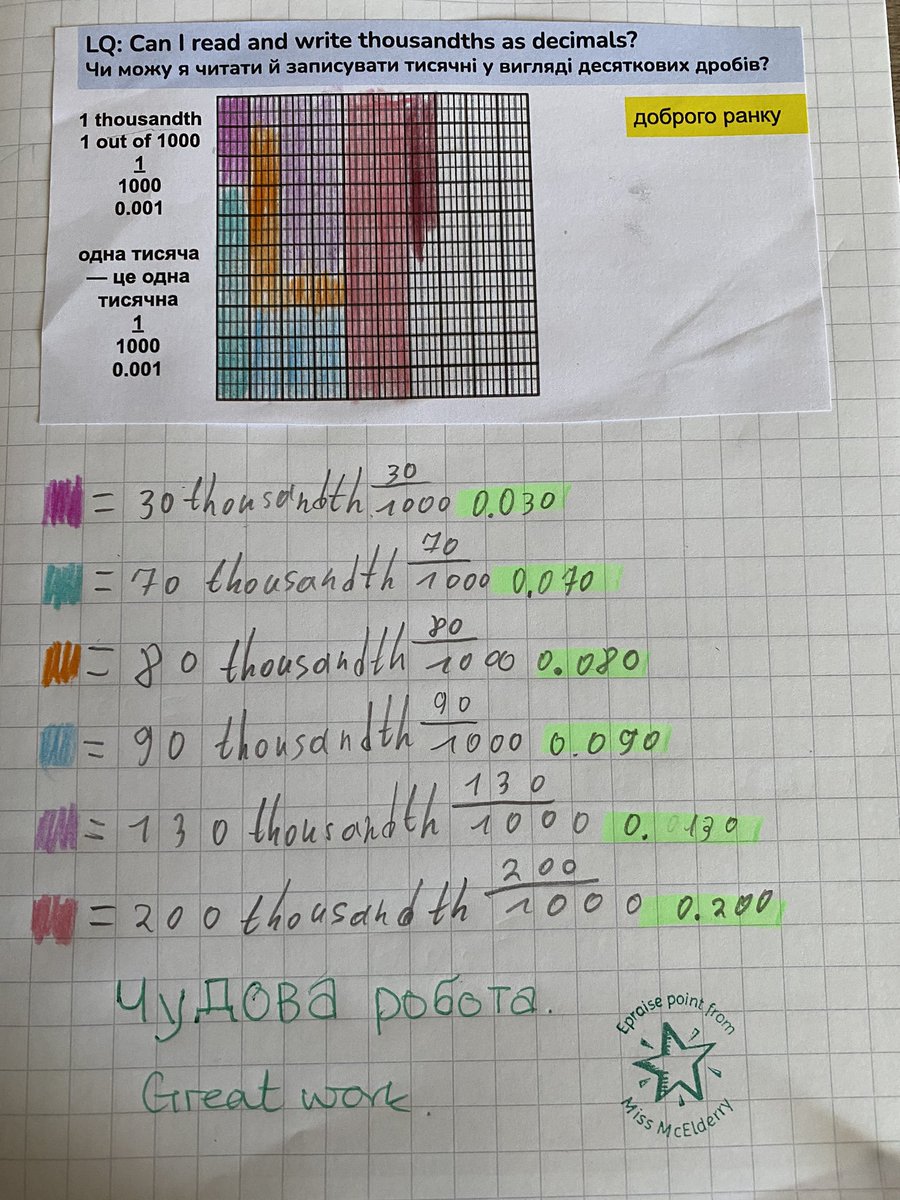 LQ: Can I read and write thousandths as decimals?
Чи можу я читати й записувати тисячні у вигляді десяткових дробів?
доброго ранку
1 thousandth
1 out of 1000
1
1000
0.001
одна тисяча
— це одна
тисячна
1
1000
0.001
= 30 thousandth 30/1000 0.030
= 70 thousandth 70/1000 0.070
= 80 thousandth 80/1000 0.080
= 90 thousandth 90/1000 0.090
= 130 thousandth 130/1000 0.130
= 200 thousandth 200/1000 0.200
Чудова робота.
Great work.
Epraise point from
Miss McElderry